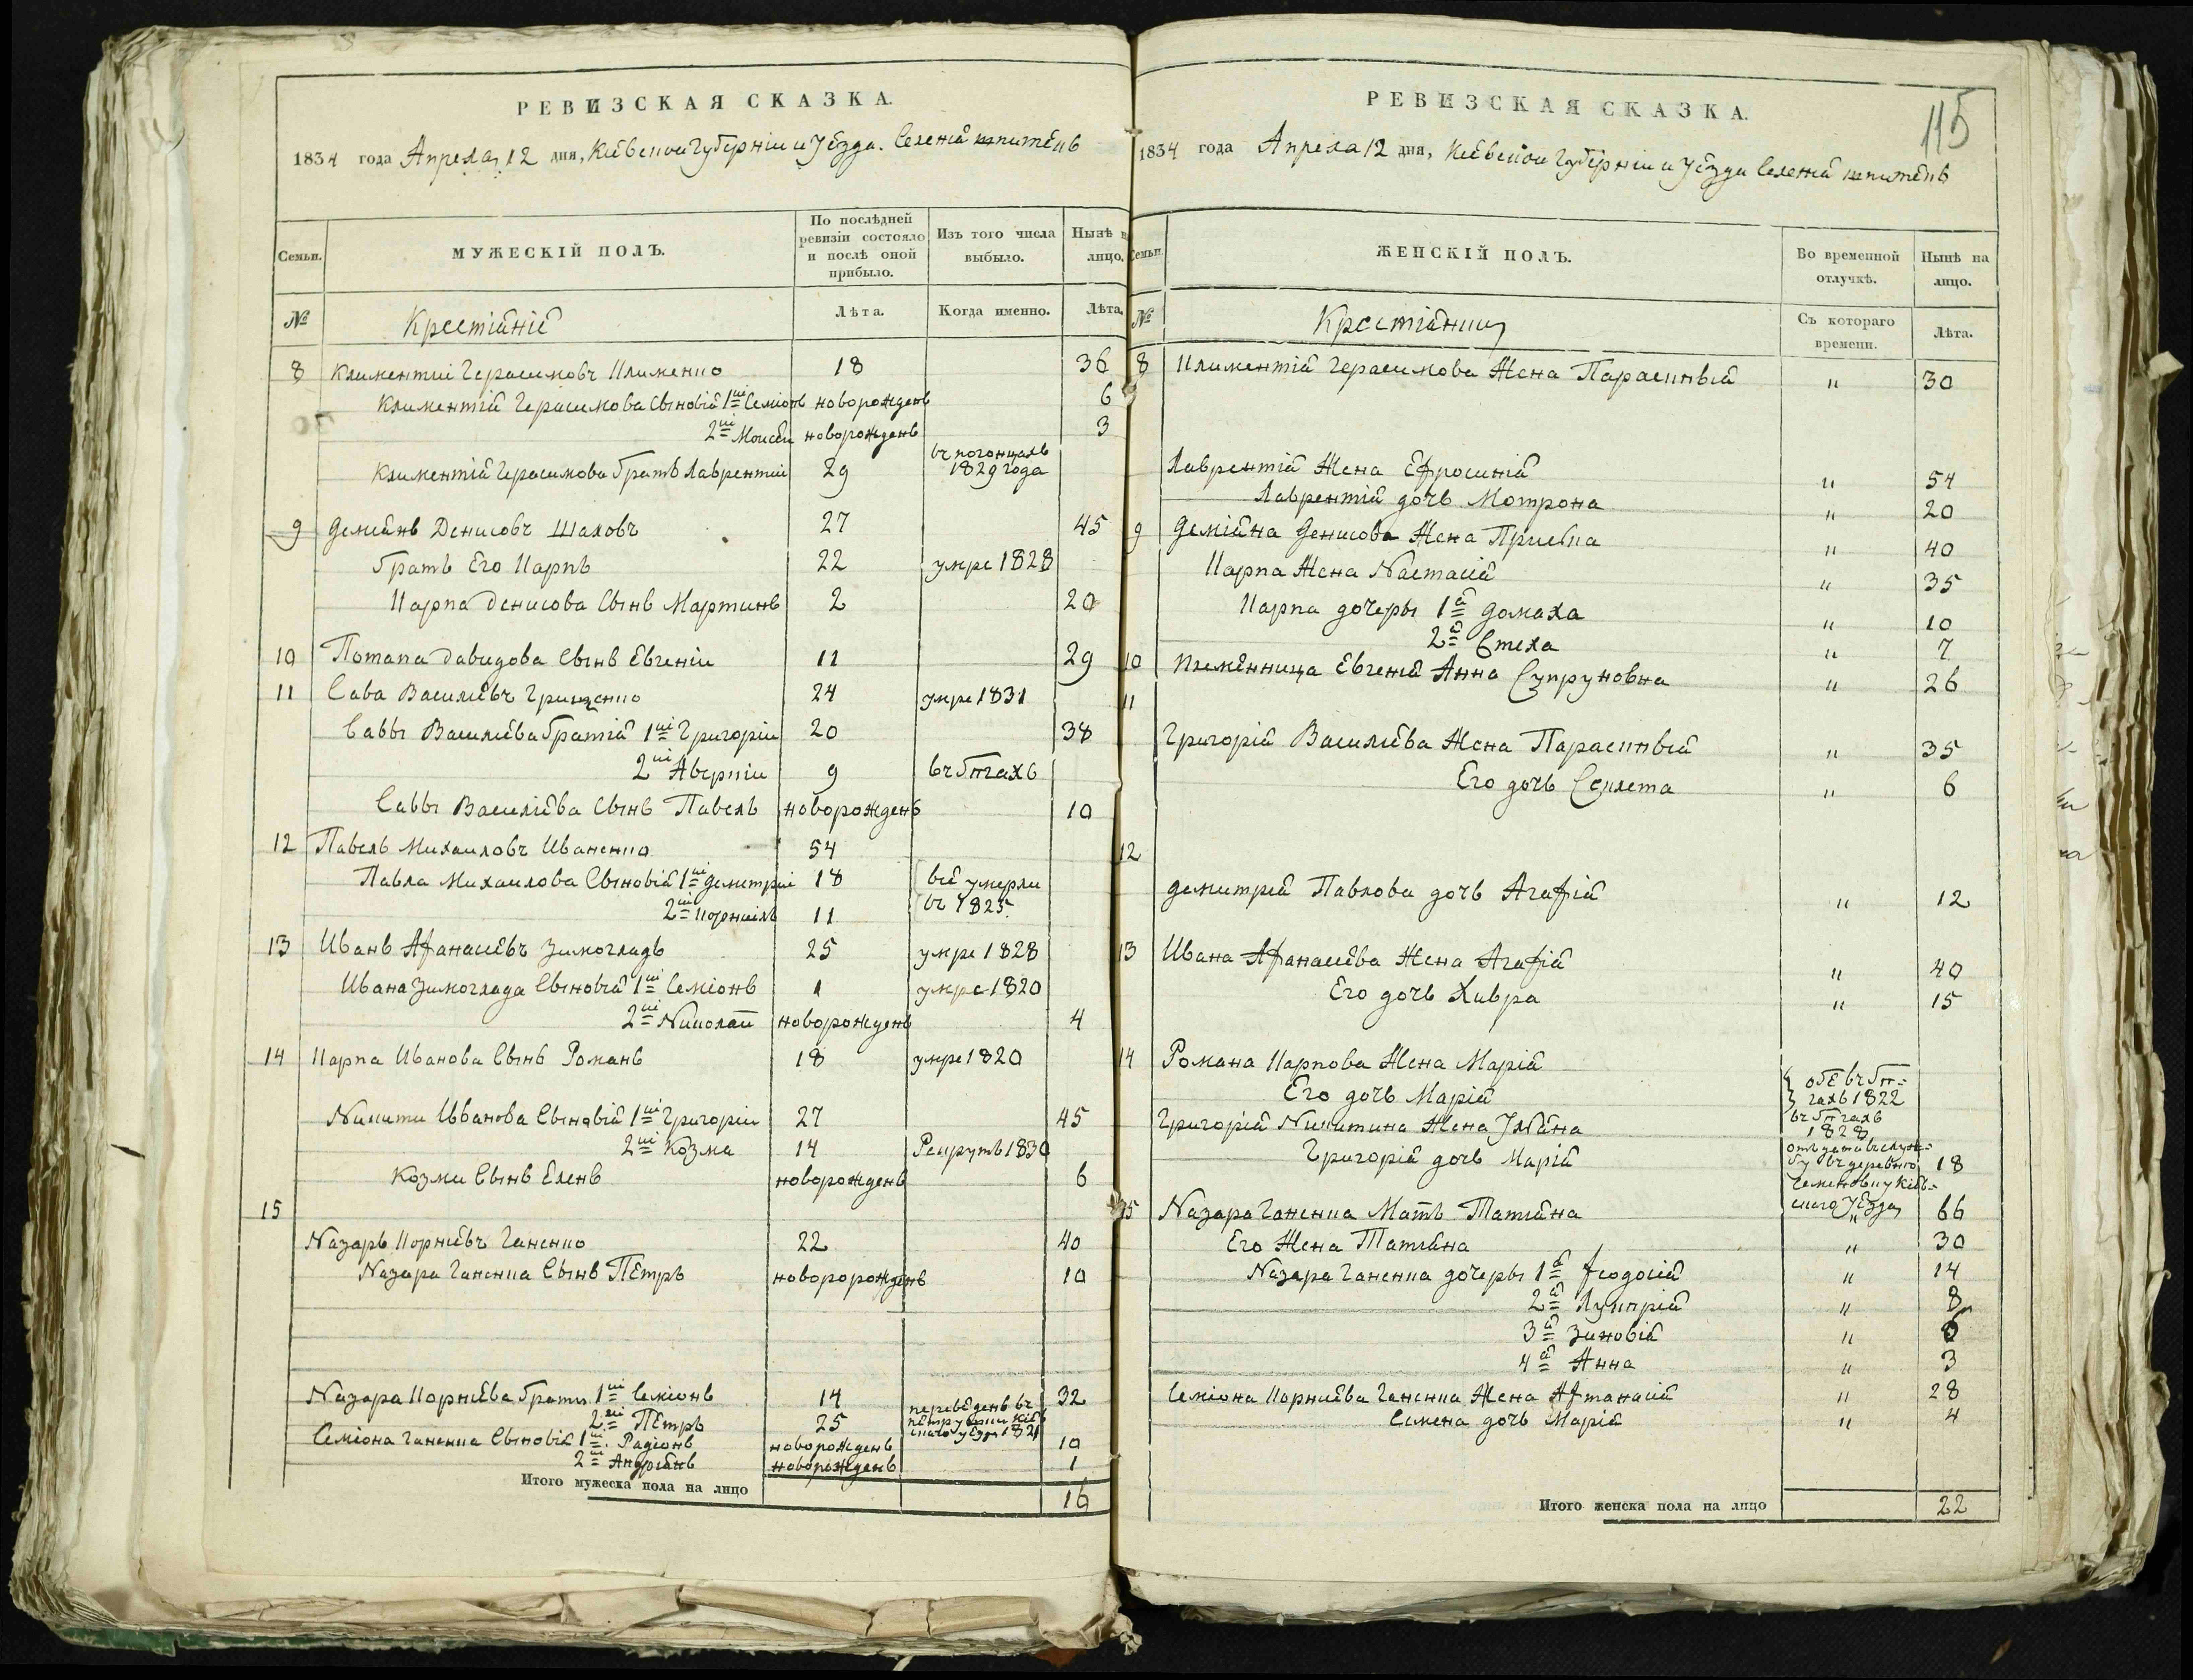 РЕВИЗСКАЯ СКАЗКА.
1834 года Апреля 12 дня, Киевской Губернии и Уезда. Селения
Семьи.
МУЖЕСКІЙ ПОЛЪ.
По послѣдней ревизіи состояло и послѣ оной прибыло.
Изъ того числа выбыло.
Нынѣ на лицо.
№
Крестіяне
Лѣта.
Когда именно.
Лѣта.
8 Климентии Герасимовъ Клименко 18 36
Климентія Герасимова Сыновія 1ий Семіонъ новорожденъ 6
2ий Моисеи новорожденъ 3
Климентія Герасимова братъ Лаврентии 29 1829 года
9 Демянъ Денисовъ Шаховъ 27 45
братъ Его Карпъ 22 умре 1828
Карпа Денисова Сынъ Мартинъ 2 20
10 Потапа Давидова Сынъ Евгении 11 29
11 Сава Василіевъ Грищенко 24 умре 1831
Саввы Василіева братія 1ий Григории 20 38
2ий Аверкии 9 въ бѣгахъ
Саввы Василіева Сынъ Павелъ новорожденъ 10
12 Павелъ Михаиловъ Иваненко 54
Павла Михаилова Сыновія 1ий Демитрии 18 всѣ умерли
2ий Корниилъ 11 въ 1825
13 Иванъ Афанасіевъ Зимогладъ 25 умре 1828
Ивана Зимоглада Сыновія 1ий Семіонъ 1 умре 1820
2ий Николай новорожденъ 4
14 Карпа Иванова Сынъ Романъ 18 умре 1820
Никити Иванова Сыновія 1ий Григории 27 45
2ий Козма 14 Рекрутъ 1830
Козми Сынъ новорожденъ 6
15
Назаръ Корніевъ Ганенко 22 40
Назара Ганенка Сынъ Пётръ новоророжденъ 10
Назара Корніева брати 1ий Семіонъ 14 32
2ий Пётръ 25 переведенъ въ 1821
Семіона Ганенка Сыновія 1ий Радіонъ новорожденъ 10
2ий Андріянъ новорожденъ 1
Итого мужеска пола на лицо 16
115
РЕВИЗСКАЯ СКАЗКА.
1834 года Апреля 12 дня, Киевской Губернии и Уезда Селения
Семьи.
ЖЕНСКІЙ ПОЛЪ.
Во временной отлучкѣ.
Нынѣ на лицо.
№
Крестіянки
Съ котораго времени.
Лѣта.
8 Климентія Герасимова Жена Параскивія " 30
Лаврентія Жена Ефросинія " 54
Лаврентія дочь Мотрона " 20
9 Деміяна Денисова Жена Приська " 40
Карпа Жена Настасія " 35
Карпа дочеры 1я Домаха " 10
2я Стеха " 7
10 племѣнница Евгенія Анна Супруновна " 26
11
Григорія Василіева Жена Параскивія " 35
Его дочь Секлета " 6
12
Демитрія Павлова дочь Агафія " 12
13 Ивана Афанасіева Жена Агафія " 40
Его дочь Хивра " 15
14 Романа Карпова Жена Марія
Его дочь Марія обѣ въ бѣгахъ 1822
Григорія Никитина Жена Уліяна въ бѣгахъ 1828
Григорія дочь Марія 18
15 Назара Ганенка Мать Татіяна " 66
Его Жена Татіяна " 30
Назара Ганенка дочеры 1я Феодосія " 14
2я Лукирія " 8
3я Зиновія "
4я Анна " 3
Семіона Корніева Ганенка Жена Афтанасія " 28
Симена дочь Марія " 4
Итого женска пола на лицо 22